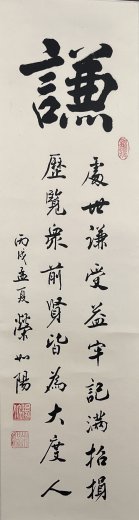 謙
處世謙受益牢記滿招損
歷覽衆前賢皆為大度人
丙戌孟夏榮如陽